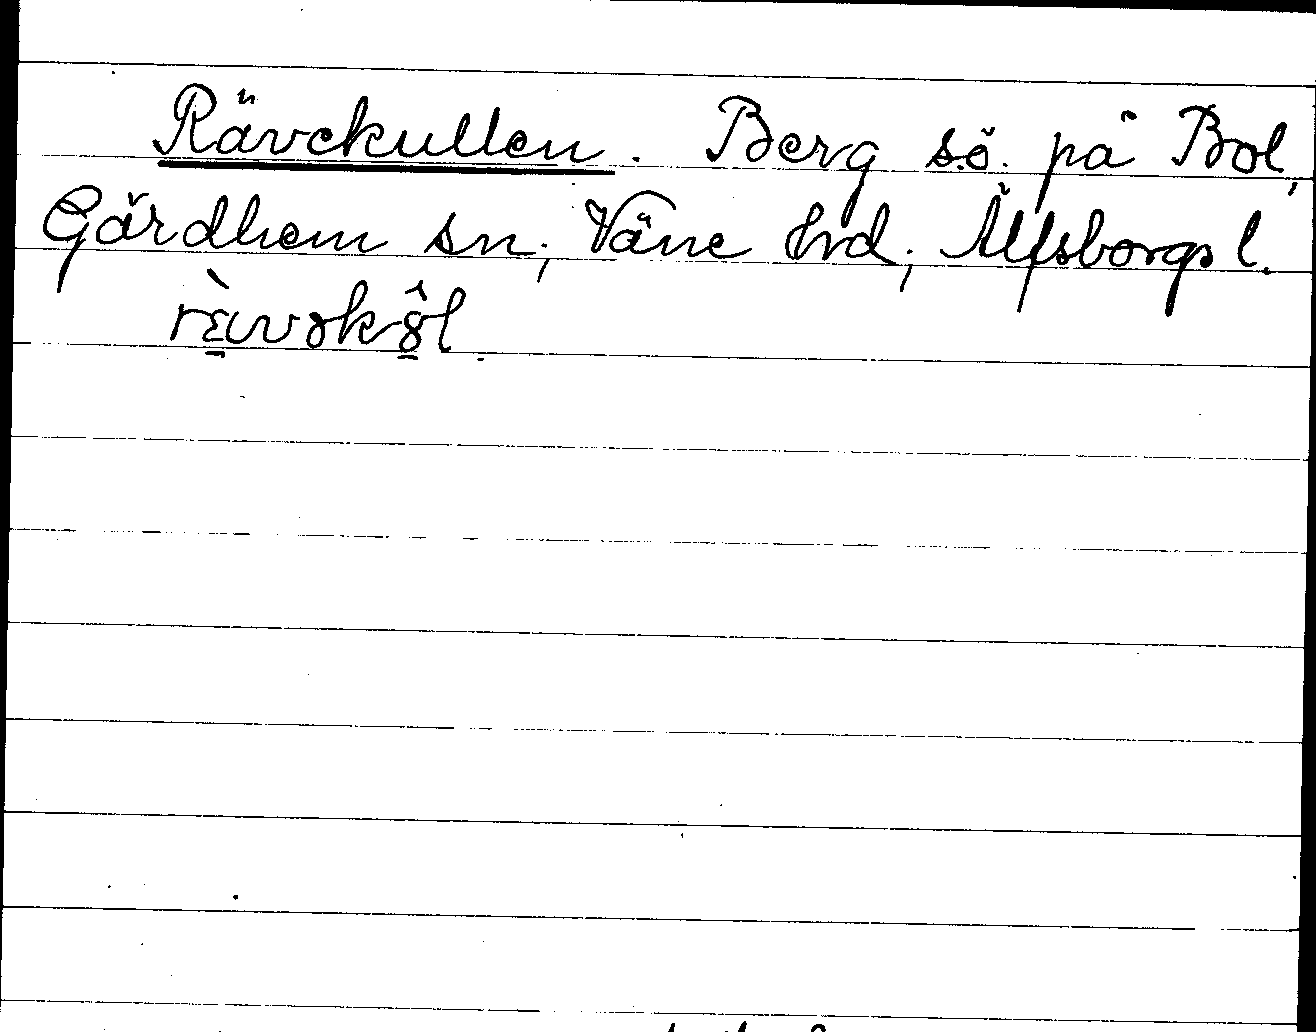 Rävekullen. Berg s.ö. på Bol,
Gärdhem sn; Väne hrd; Älfsborgs l.